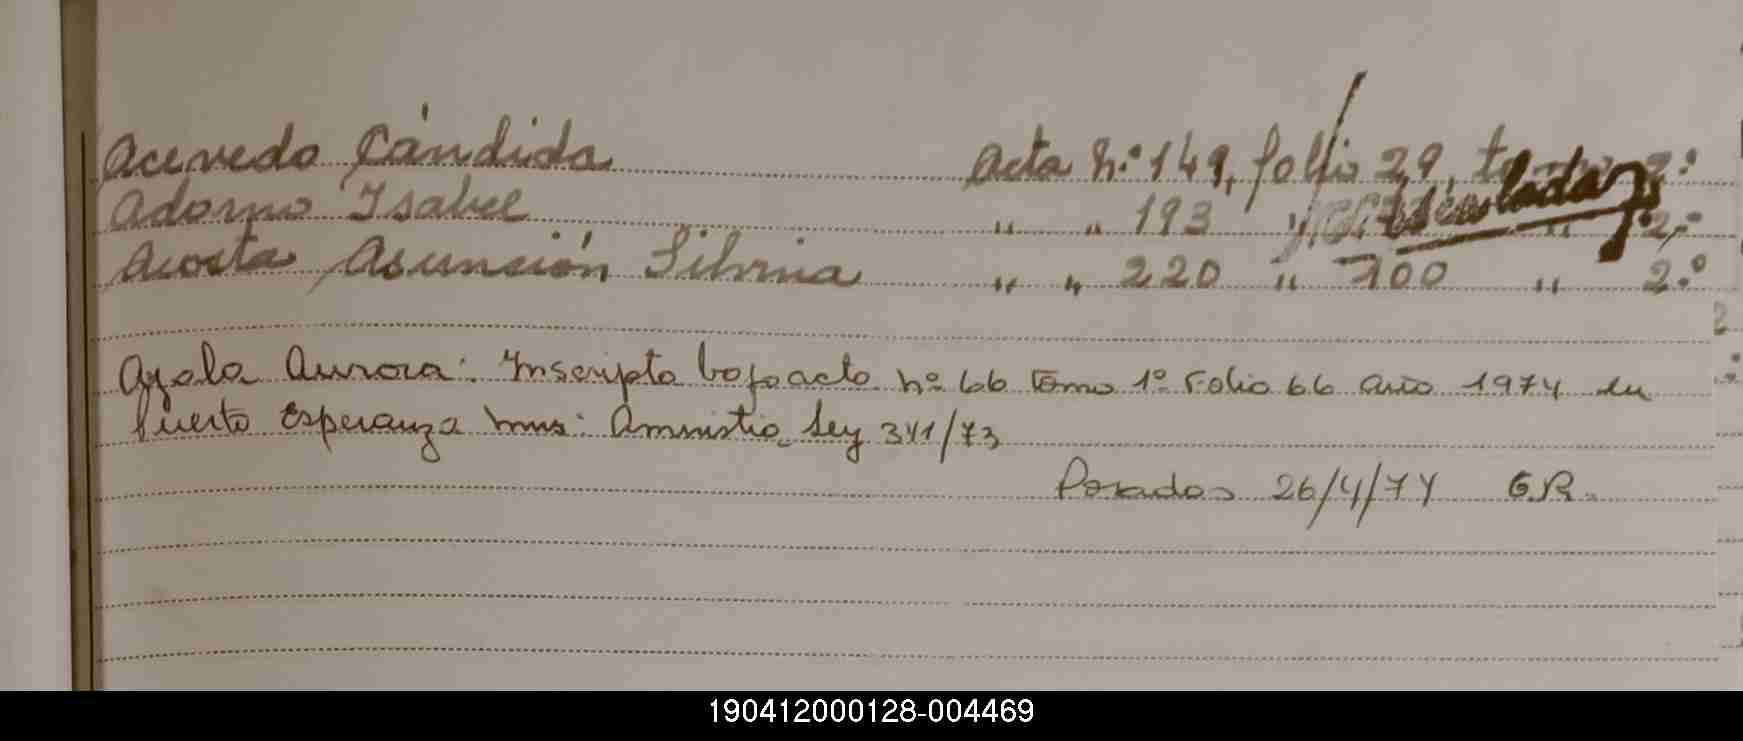 Acevedo Cándida Acta N.º 149, folio 29, tomo 2.º
Adorno Isabel " " 193 " " 2.º
Acosta Asunción Silvina " " 220 " 100 " 2.º
Ayala Aurora: Inscripta bajo acto nº 66 tomo 1º Folio 66 año 1974 en
Puerto Esperanza Mnes: Amnistia Ley 341/73
Posadas 26/4/74 G.R.
190412000128-004469